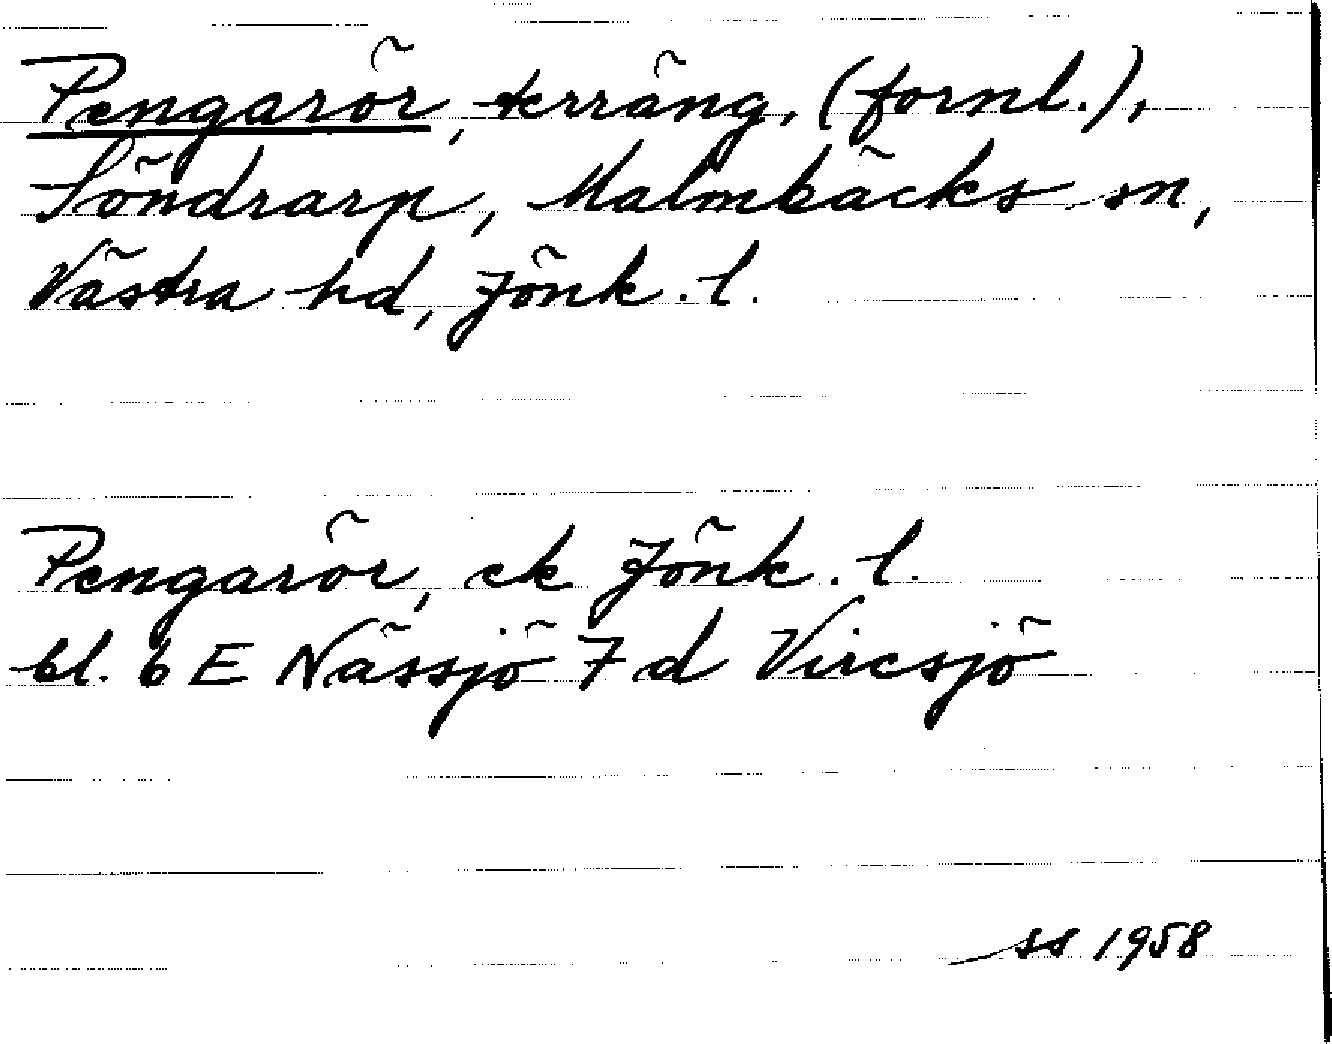 Pengarör, terräng. (fornl.),
Söndrarp, Malmbäcks sn,
Västra hd, Jönk. l.
Pengarör, ek Jönk. l.
bl. 6 E Nässjö 7 d Viresjö
ss 1958